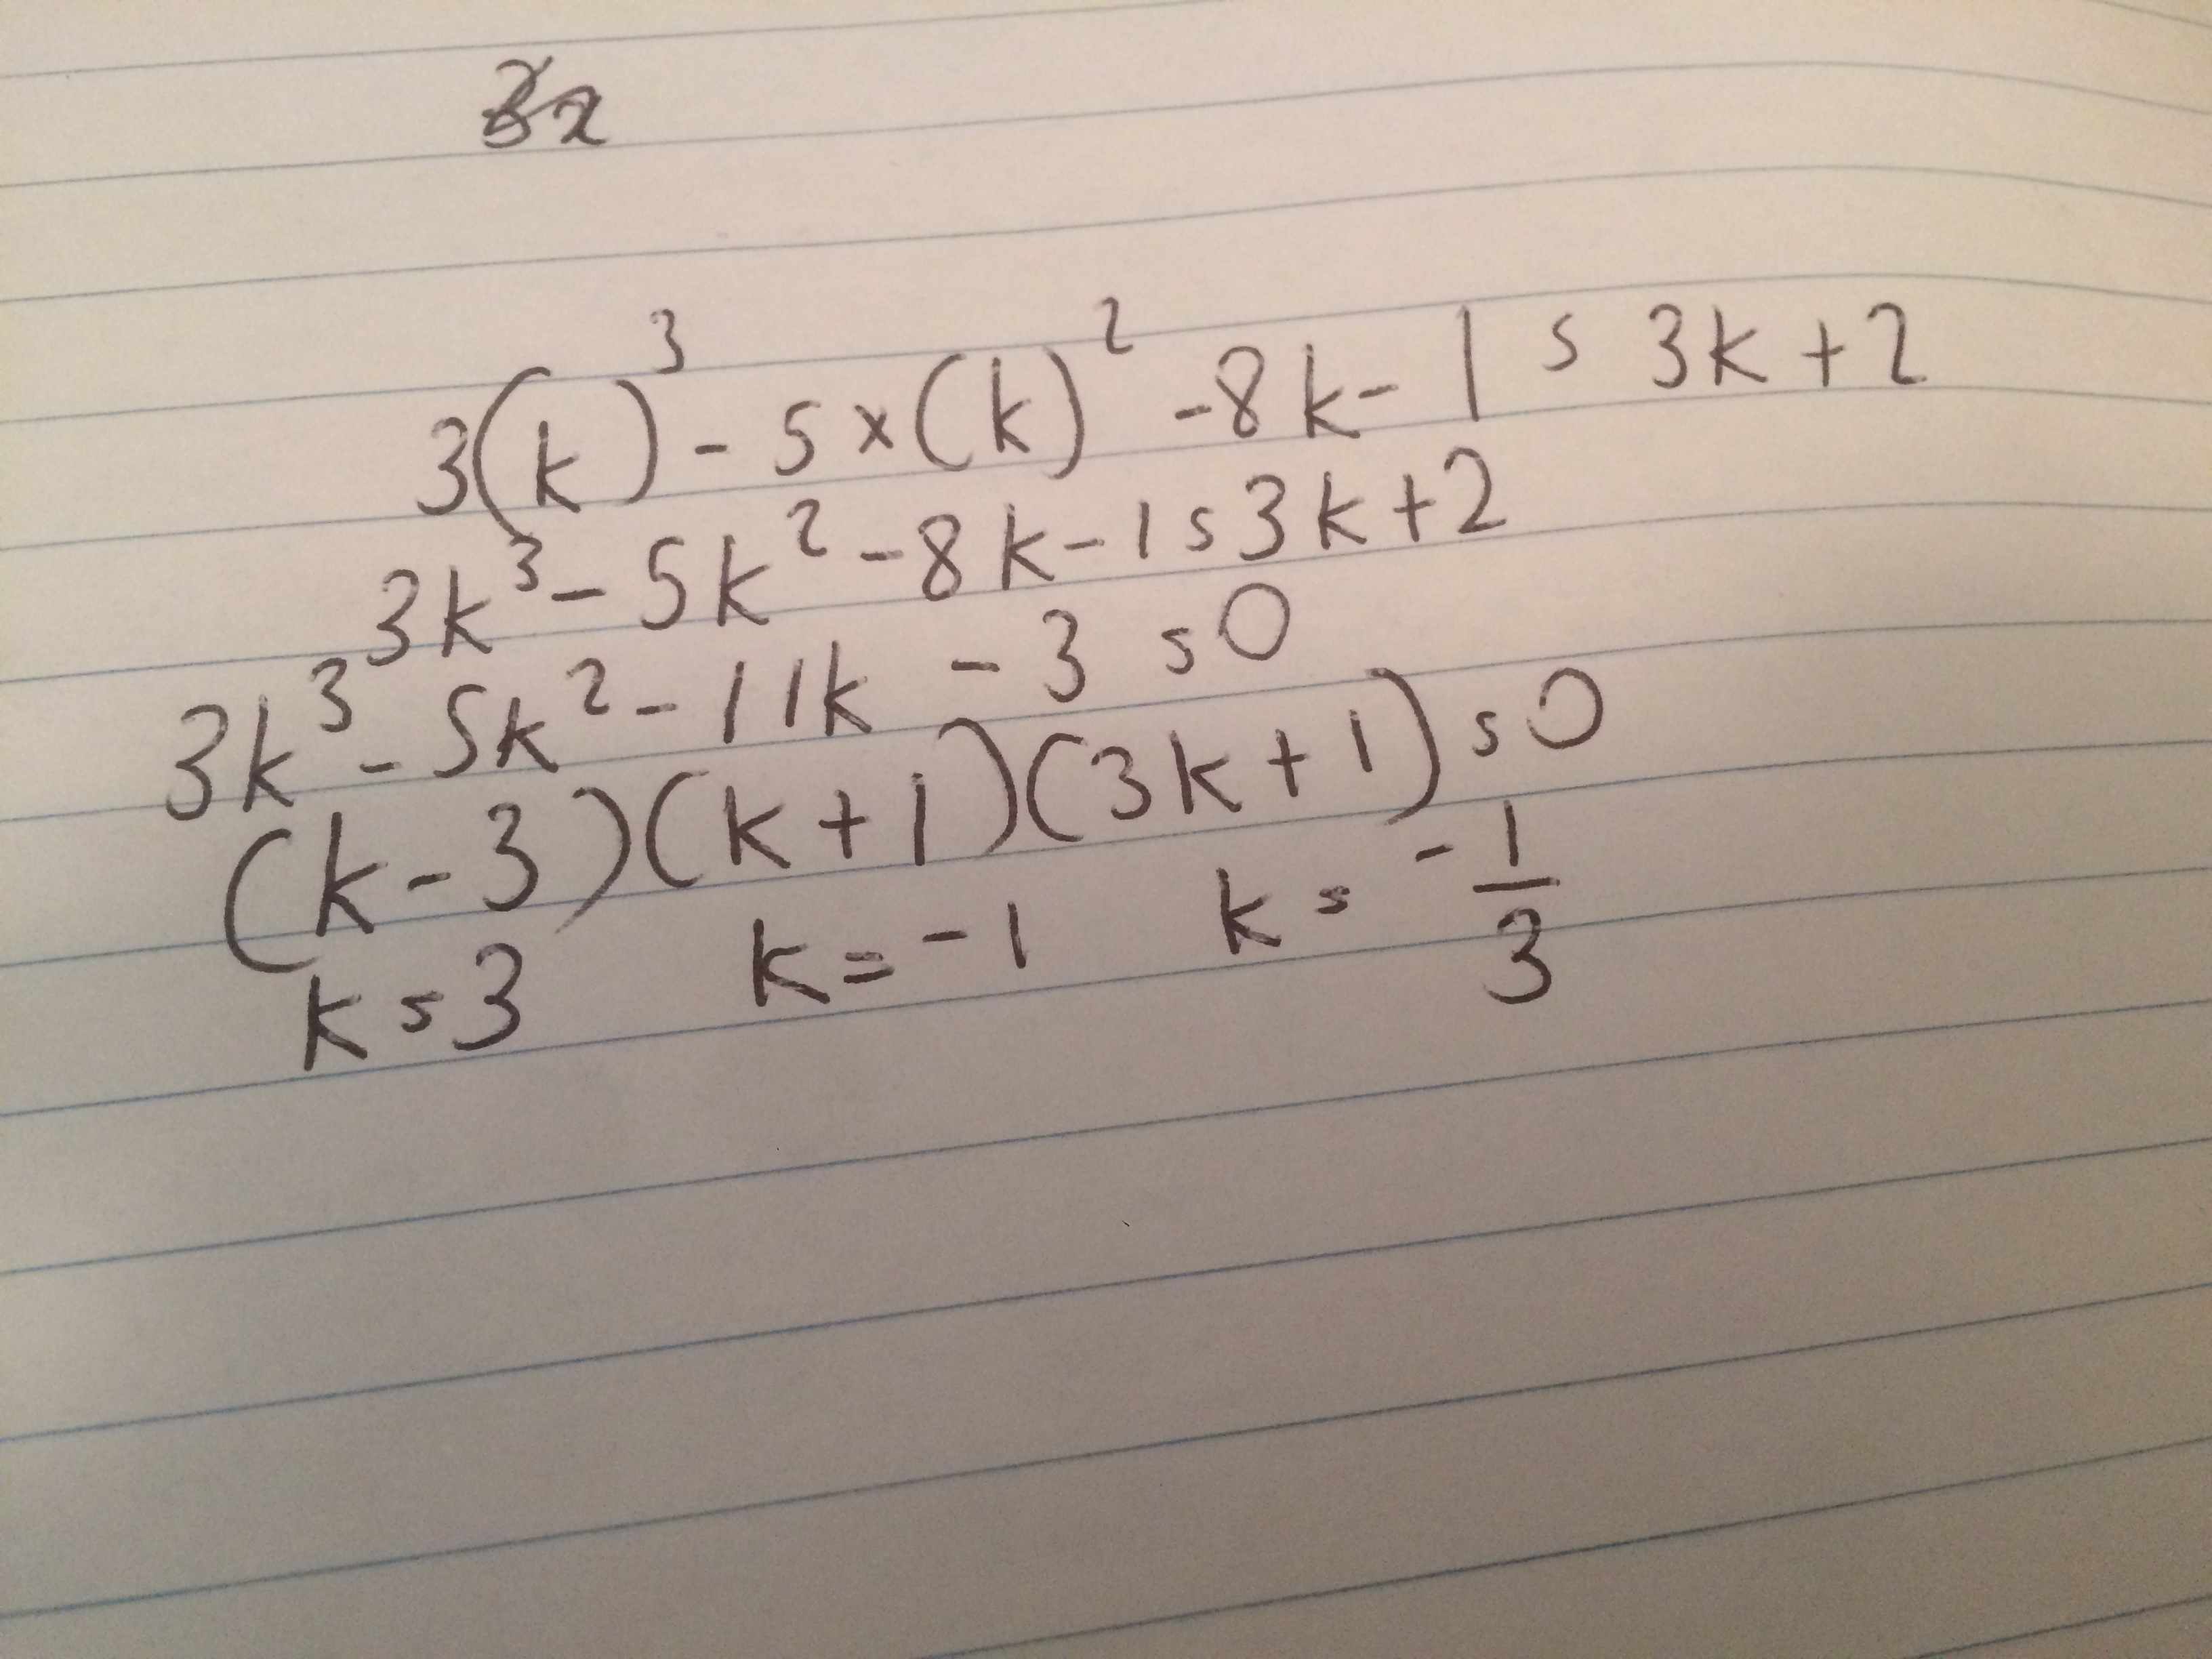 3x
3(k)³ - 5×(k)² - 8k - 1 = 3k + 2
3k³ - 5k² - 8k - 1 = 3k + 2
3k³ - 5k² - 11k - 3 = 0
(k - 3)(k + 1)(3k + 1) = 0
k = 3 k = -1 k = -1/3